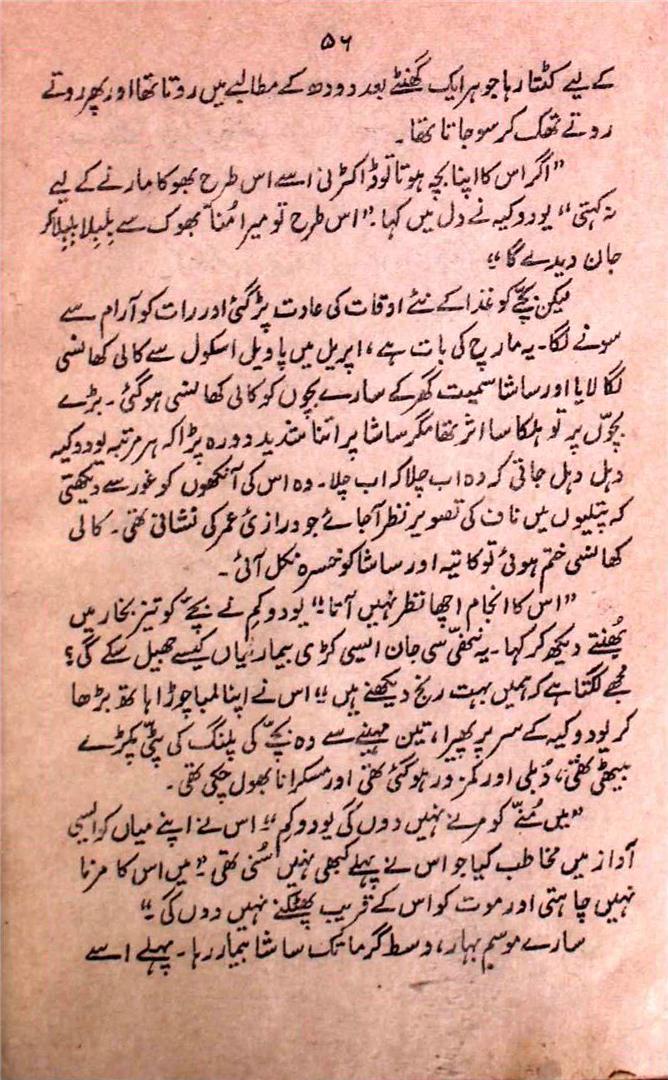 ۵۶
کے لیے کٹتا رہا جو ہر ایک گھنٹے بعد دودھ کے مطالبے میں روتا تھا اور پھر روتے
روتے تھک کر سو جاتا تھا۔
”اگر اس کا اپنا بچہ ہوتا تو ڈاکٹرنی اسے اس طرح بھوکا مارنے کے لیے
نہ کہتی“ یودوکیہ نے دل میں کہا۔ ”اس طرح تو میرا مُنّا بھوک سے بِلبِلا بِلبِلا کر
جان دیدے گا“
لیکن بچّے کو غذا کے نئے اوقات کی عادت پڑ گئی اور رات کو آرام سے
سونے لگا۔ یہ مارچ کی بات ہے، اپریل میں پاویل اسکول سے کالی کھانسی
لگا لایا اور ساشا سمیت گھر کے سارے بچوں کو کالی کھانسی ہو گئی۔ بڑے
بچوّں پر تو ہلکا سا اثر تھا مگر ساشا پر اتنا شدید دورہ پڑا کہ ہر مرتبہ یودوکیہ
دہل دہل جاتی کہ وہ اب چلا کہ اب چلا۔ وہ اس کی آنکھوں کو غور سے دیکھتی
کہ پتلیوں میں ناف کی تصویر نظر آجائے جو درازئ عمر کی نشانی تھی۔ کالی
کھانسی ختم ہوئی تو کاتیہ اور ساشا کو خسرہ نکل آئی۔
”اس کا انجام اچھا نظر نہیں آتا“ یودوکم نے بچّے کو تیز بخار میں
پُھنتے دیکھ کر کہا۔ یہ ننھّی سی جان ایسی کڑی بیماریاں کیسے جھیل سکے گی؟
مجھے لگتا ہے کہ ہمیں بہت رنج دیکھنے ہیں“ اس نے اپنا لمبا چوڑا ہاتھ بڑھا
کر یودوکیہ کے سر پر پھیرا، تین مہینے سے وہ بچّے کی پلنگ کی پٹّی پکڑے
بیٹھی تھی، دُبلی اور کمزور ہو گئی تھی اور مسکرانا بھول چکی تھی۔
”میں مُنّے کو مرنے نہیں دوں گی یودوکم“ اس نے اپنے میاں کو ایسی
آواز میں مخاطب کیا جو اس نے پہلے کبھی نہیں سُنی تھی ”میں اس کا مرنا
نہیں چاہتی اور موت کو اس کے قریب پھٹکنے نہیں دوں گی“
سارے موسمِ بہار، وسط گرما تک ساشا بیمار رہا۔ پہلے اسے